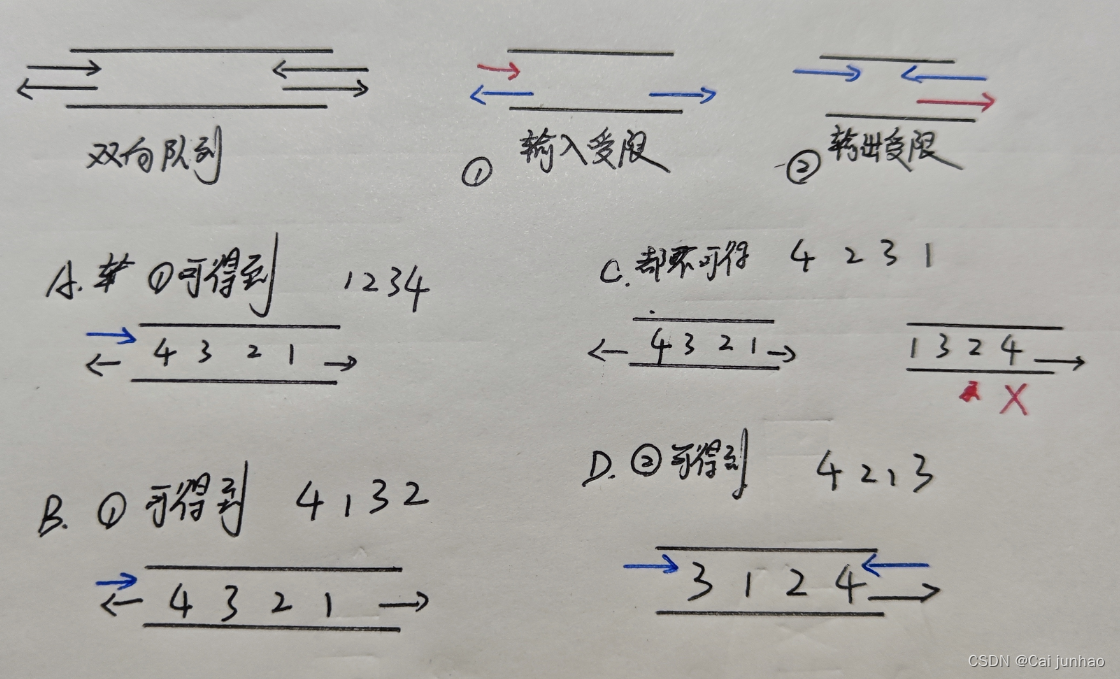 双向队列
① 输入受限
② 输出受限
A. ①可得到 1234
4 3 2 1
C. 都不可得 4 2 3 1
4 3 2 1
1 3 2 4
X
B. ① 可得到 4 1 3 2
4 3 2 1
D. ② 可得到 4 2 1 3
3 1 2 4
CSDN @Cai junhao